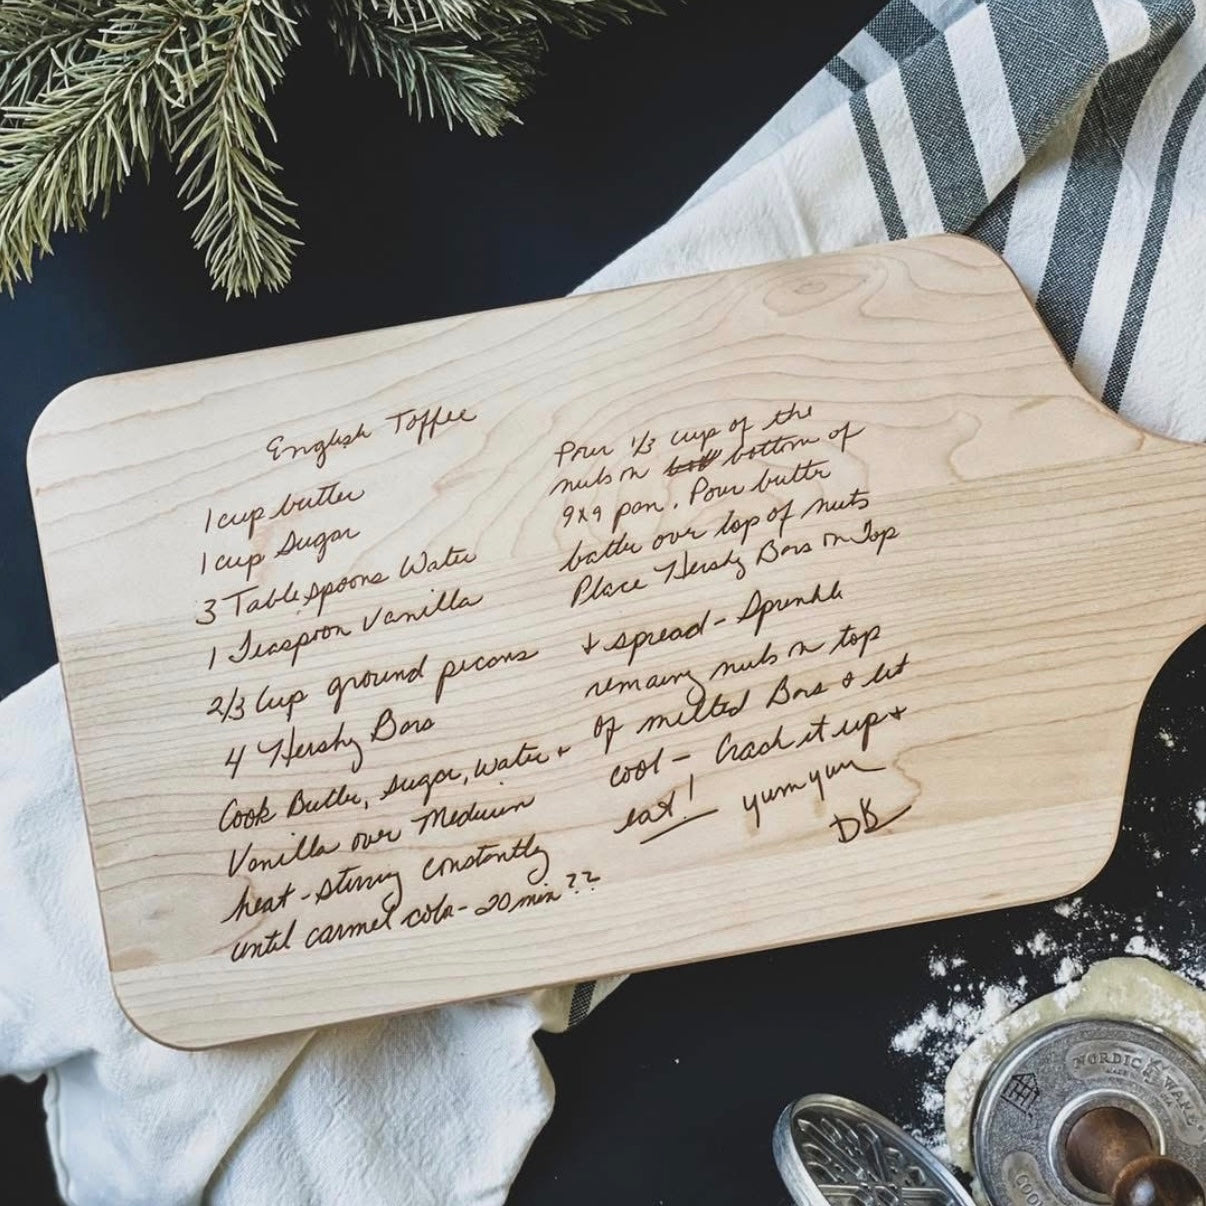 English Toffee
1 cup butter
1 cup Sugar
3 Tablespoons Water
1 Teaspoon Vanilla
2/3 Cup ground pecans
4 Hershy Bars
Cook Butter, Sugar, Water +
Vanilla over Medium
heat - stirring constantly
until carmel color - 20 min ??
Pour 1/3 cup of the
nuts on bottom of
9x9 pan. Pour butter
batter over top of nuts
Place Hershy Bars on Top
+ spread - Sprinkle
remaing nuts on top
Of melted Bars & let
cool - Crack it up +
eat! yum yum
DB
NORDIC WARE